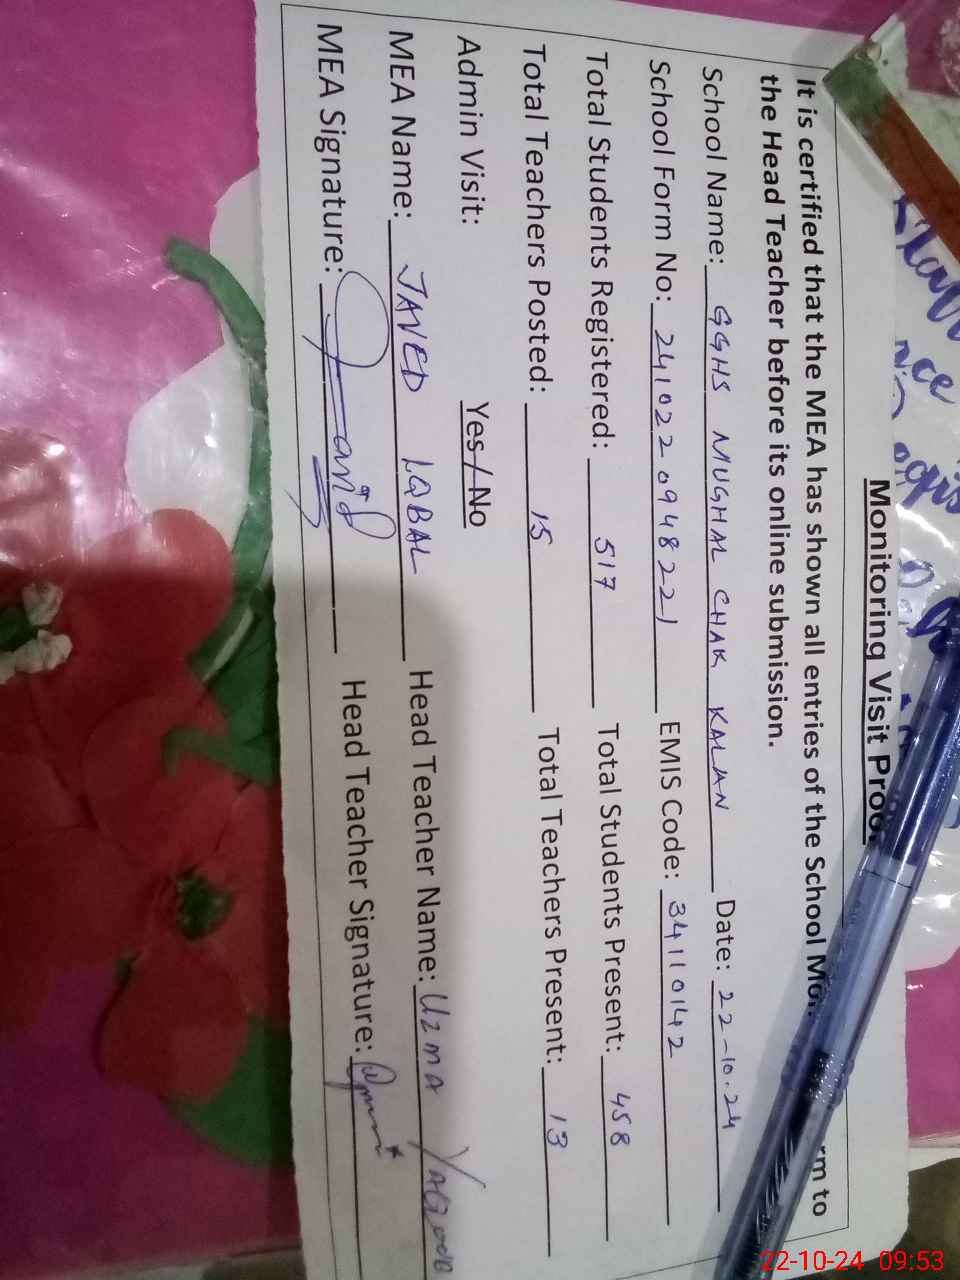 Monitoring Visit
It is certified that the MEA has shown all entries of the School to
the Head Teacher before its online submission.
School Name: GGHS MUGHAL CHAK KALAN Date: 22-10.24
School Form No: 2410220948221 EMIS Code: 34110142
Total Students Registered: 517 Total Students Present: 458
Total Teachers Posted: 15 Total Teachers Present: 13
Admin Visit: Yes/No
MEA Name: JAVED IQBAL Head Teacher Name: Uzma
MEA Signature: Head Teacher Signature:
22-10-24 09:53